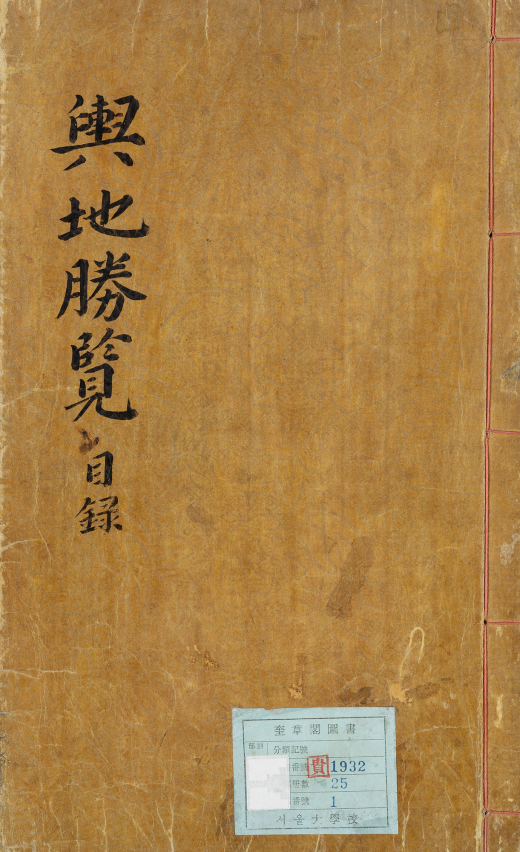 輿地勝覽 目録
奎章閣圖書
部別
分類記號
番號 貴1932
冊數 25
番號 1
서울大學校